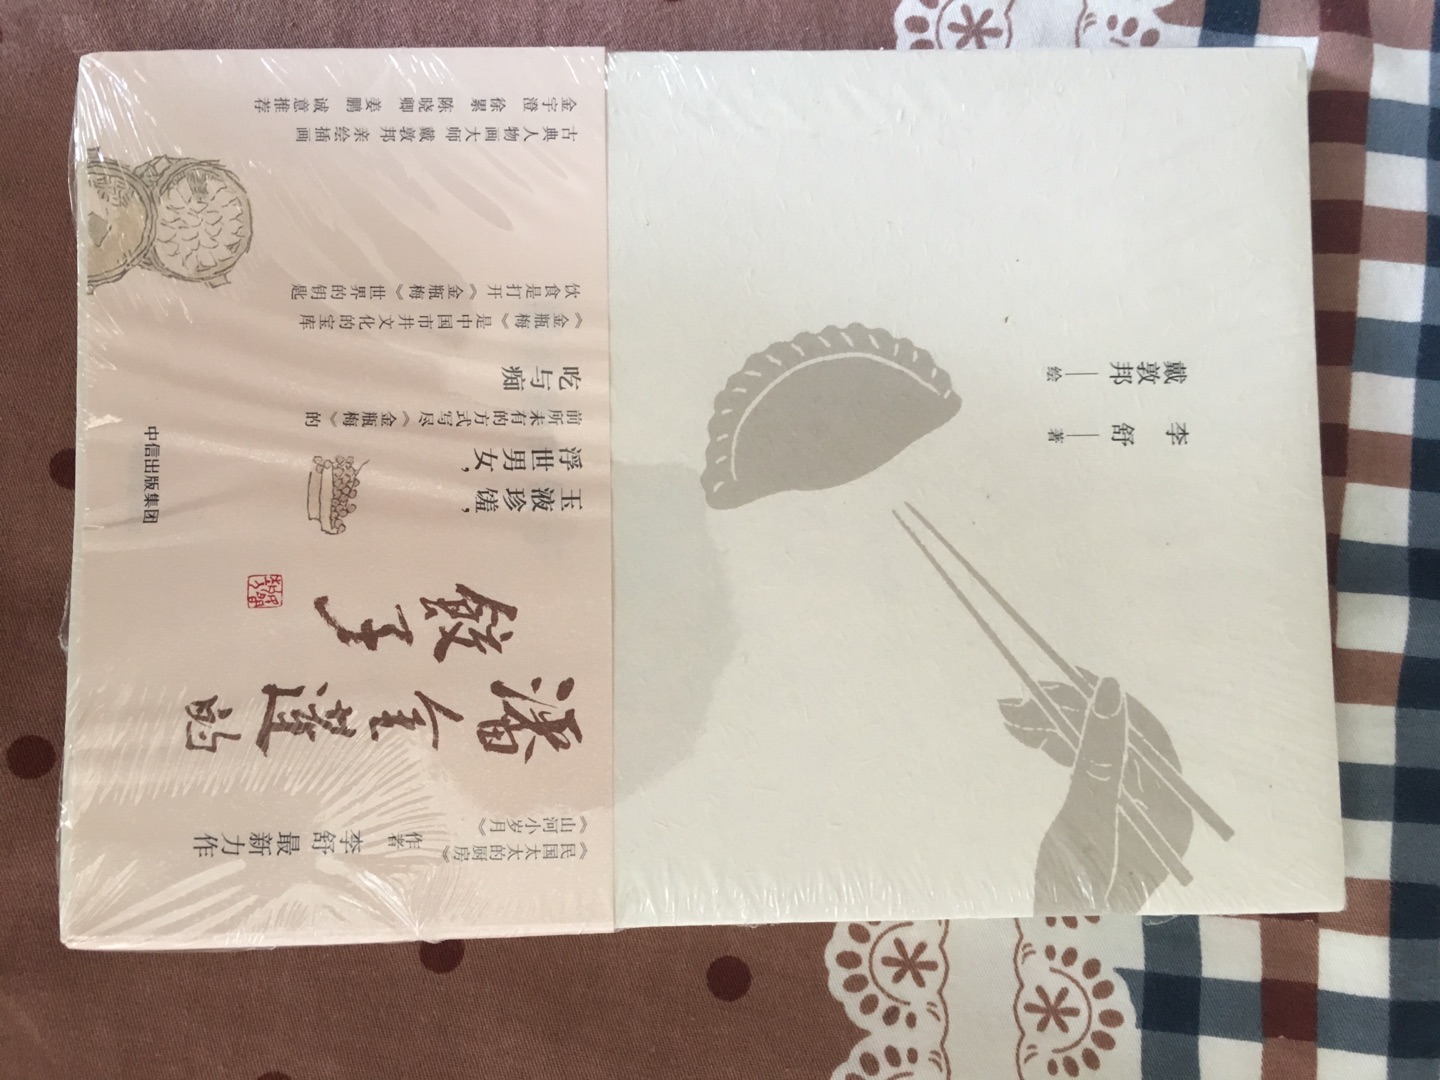 李舒 著
戴敦邦 绘
《民国太太的厨房》
《山河小岁月》
作者
李舒最新力作
潘金莲的
饺子
玉液珍馐，
浮世男女，
前所未有的方式写尽《金瓶梅》的
吃与痴
《金瓶梅》是中国市井文化的宝库
饮食是打开《金瓶梅》世界的钥匙
古典人物画大师 戴敦邦 亲绘插画
金宇澄 徐累 陈晓卿 姜鹏 诚意推荐
中信出版集团